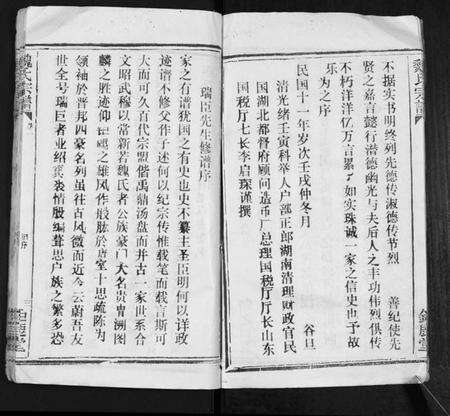 魏氏宗譜
不据实书明终列先德传淑德传节烈 善纪使先
贤之嘉言懿行潜德幽光与夫后人之丰功伟烈俱传
不朽洋洋亿万言累了如实珠诚一家之信史也予故
乐为之序
民国十一年岁次壬戌仲冬月 谷旦
清光绪壬寅科举人户部正郎湖南清理财政官民
国湖北都督府顾问造币厂总理国税厅厅长山东
国税厅七长李启琛谨撰
瑞臣先生修谱序
家之有谱犹国之有史也史不纂主圣臣明何以详政
迹谱不修父作子述何以纪宗传惟载笔而载言斯可
大而可久百代宗盟偕禹鼎汤盘而并古一家世系合
文昭武穆以常新若魏氏者公族豪门大名贵胄渊图
麟之胜迹仰 之雄风作殷脉於唐堂十思疏陈为
领袖於晋邦四豪名列虽往古风微而近今云蔚吾友
世全号瑞臣者业绍裘裘情殷编葺思户族之繁多恐
魏氏宗譜